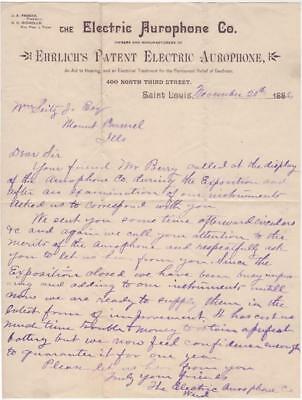 THE Electric Aurophone Co.
OWNERS AND MANUFACTURERS OF
EHRLICH'S PATENT ELECTRIC AUROPHONE,
An Aid to Hearing, and an Electrical Treatment for the Permanent Relief of Deafness.
400 NORTH THIRD STREET.
Saint Louis, November 20th 188
Wm Seitz Jr Esq
Mount Carmel
Ills
Dear Sir
Your friend Mr Berry called at the display
of the Aurophone Co. during the Exposition and
after an examination of our instruments
asked us to correspond with you.
We sent you some time afterward circulars
&c and again we call your attention to the
merits of the Aurophone and respectfully ask
you to let us hear from you. Since the
Exposition closed we have been busy improv
ing and adding to our instruments until
now we are ready to supply them in the
latest form of improvement. It has cost us
much time trouble & money to obtain a perfect
battery but we now feel confident enough
to guarantee it for one year.
Please let us hear from you
Truly your friends
The Electric Aurophone Co